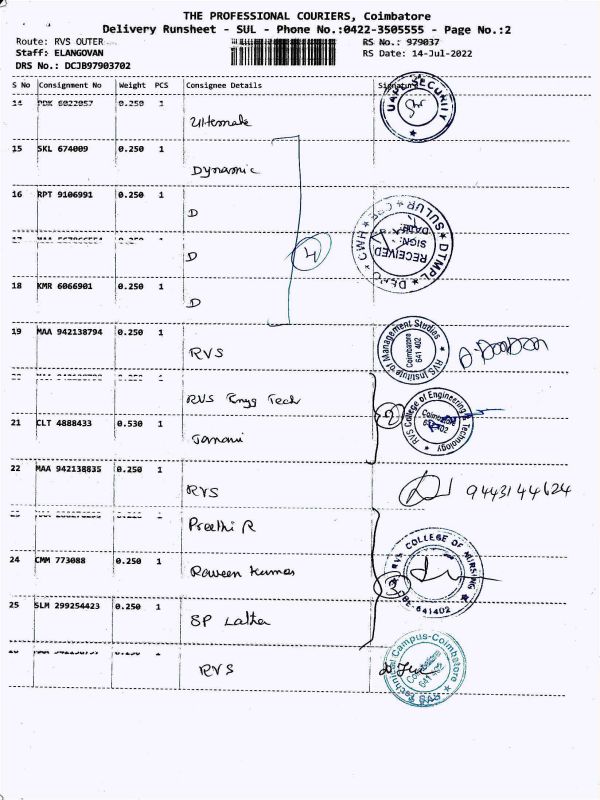 THE PROFESSIONAL COURIERS, Coimbatore
Delivery Runsheet - SUL - Phone No.:0422-3505555 - Page No.:2
Route: RVS OUTER
RS No.: 979037
Staff: ELANGOVAN
RS Date: 14-Jul-2022
DRS No.: DCJB97903702
S No Consignment No Weight PCS Consignee Details Signature
14 PDK 6022057 0.250 1
SECURITY
15 SKL 674009 0.250 1
Dynamic
16 RPT 9106991 0.250 1
D
SULUR ★ DTMPL ★
CWH
RECEIVED
SIGN:
DATE:
D
4
18 KMR 6066901 0.250 1
D
19 MAA 942138794 0.250 1
RVS
RVS Institute of Management Studies
Coimbatore
641 402
RVS Engg Tech
2
RVS College of Engineering & Technology
Coimbatore
21 CLT 4888433 0.530 1
22 MAA 942138835 0.250 1
RVS
9443144624
Preethi R
RVS COLLEGE OF NURSING
641402
24 CMM 773088 0.250 1
Raveen Kumar
3
25 SLM 299254423 0.250 1
SP Latha
RVS
Technical Campus-Coimbatore
Coimbatore
641 402